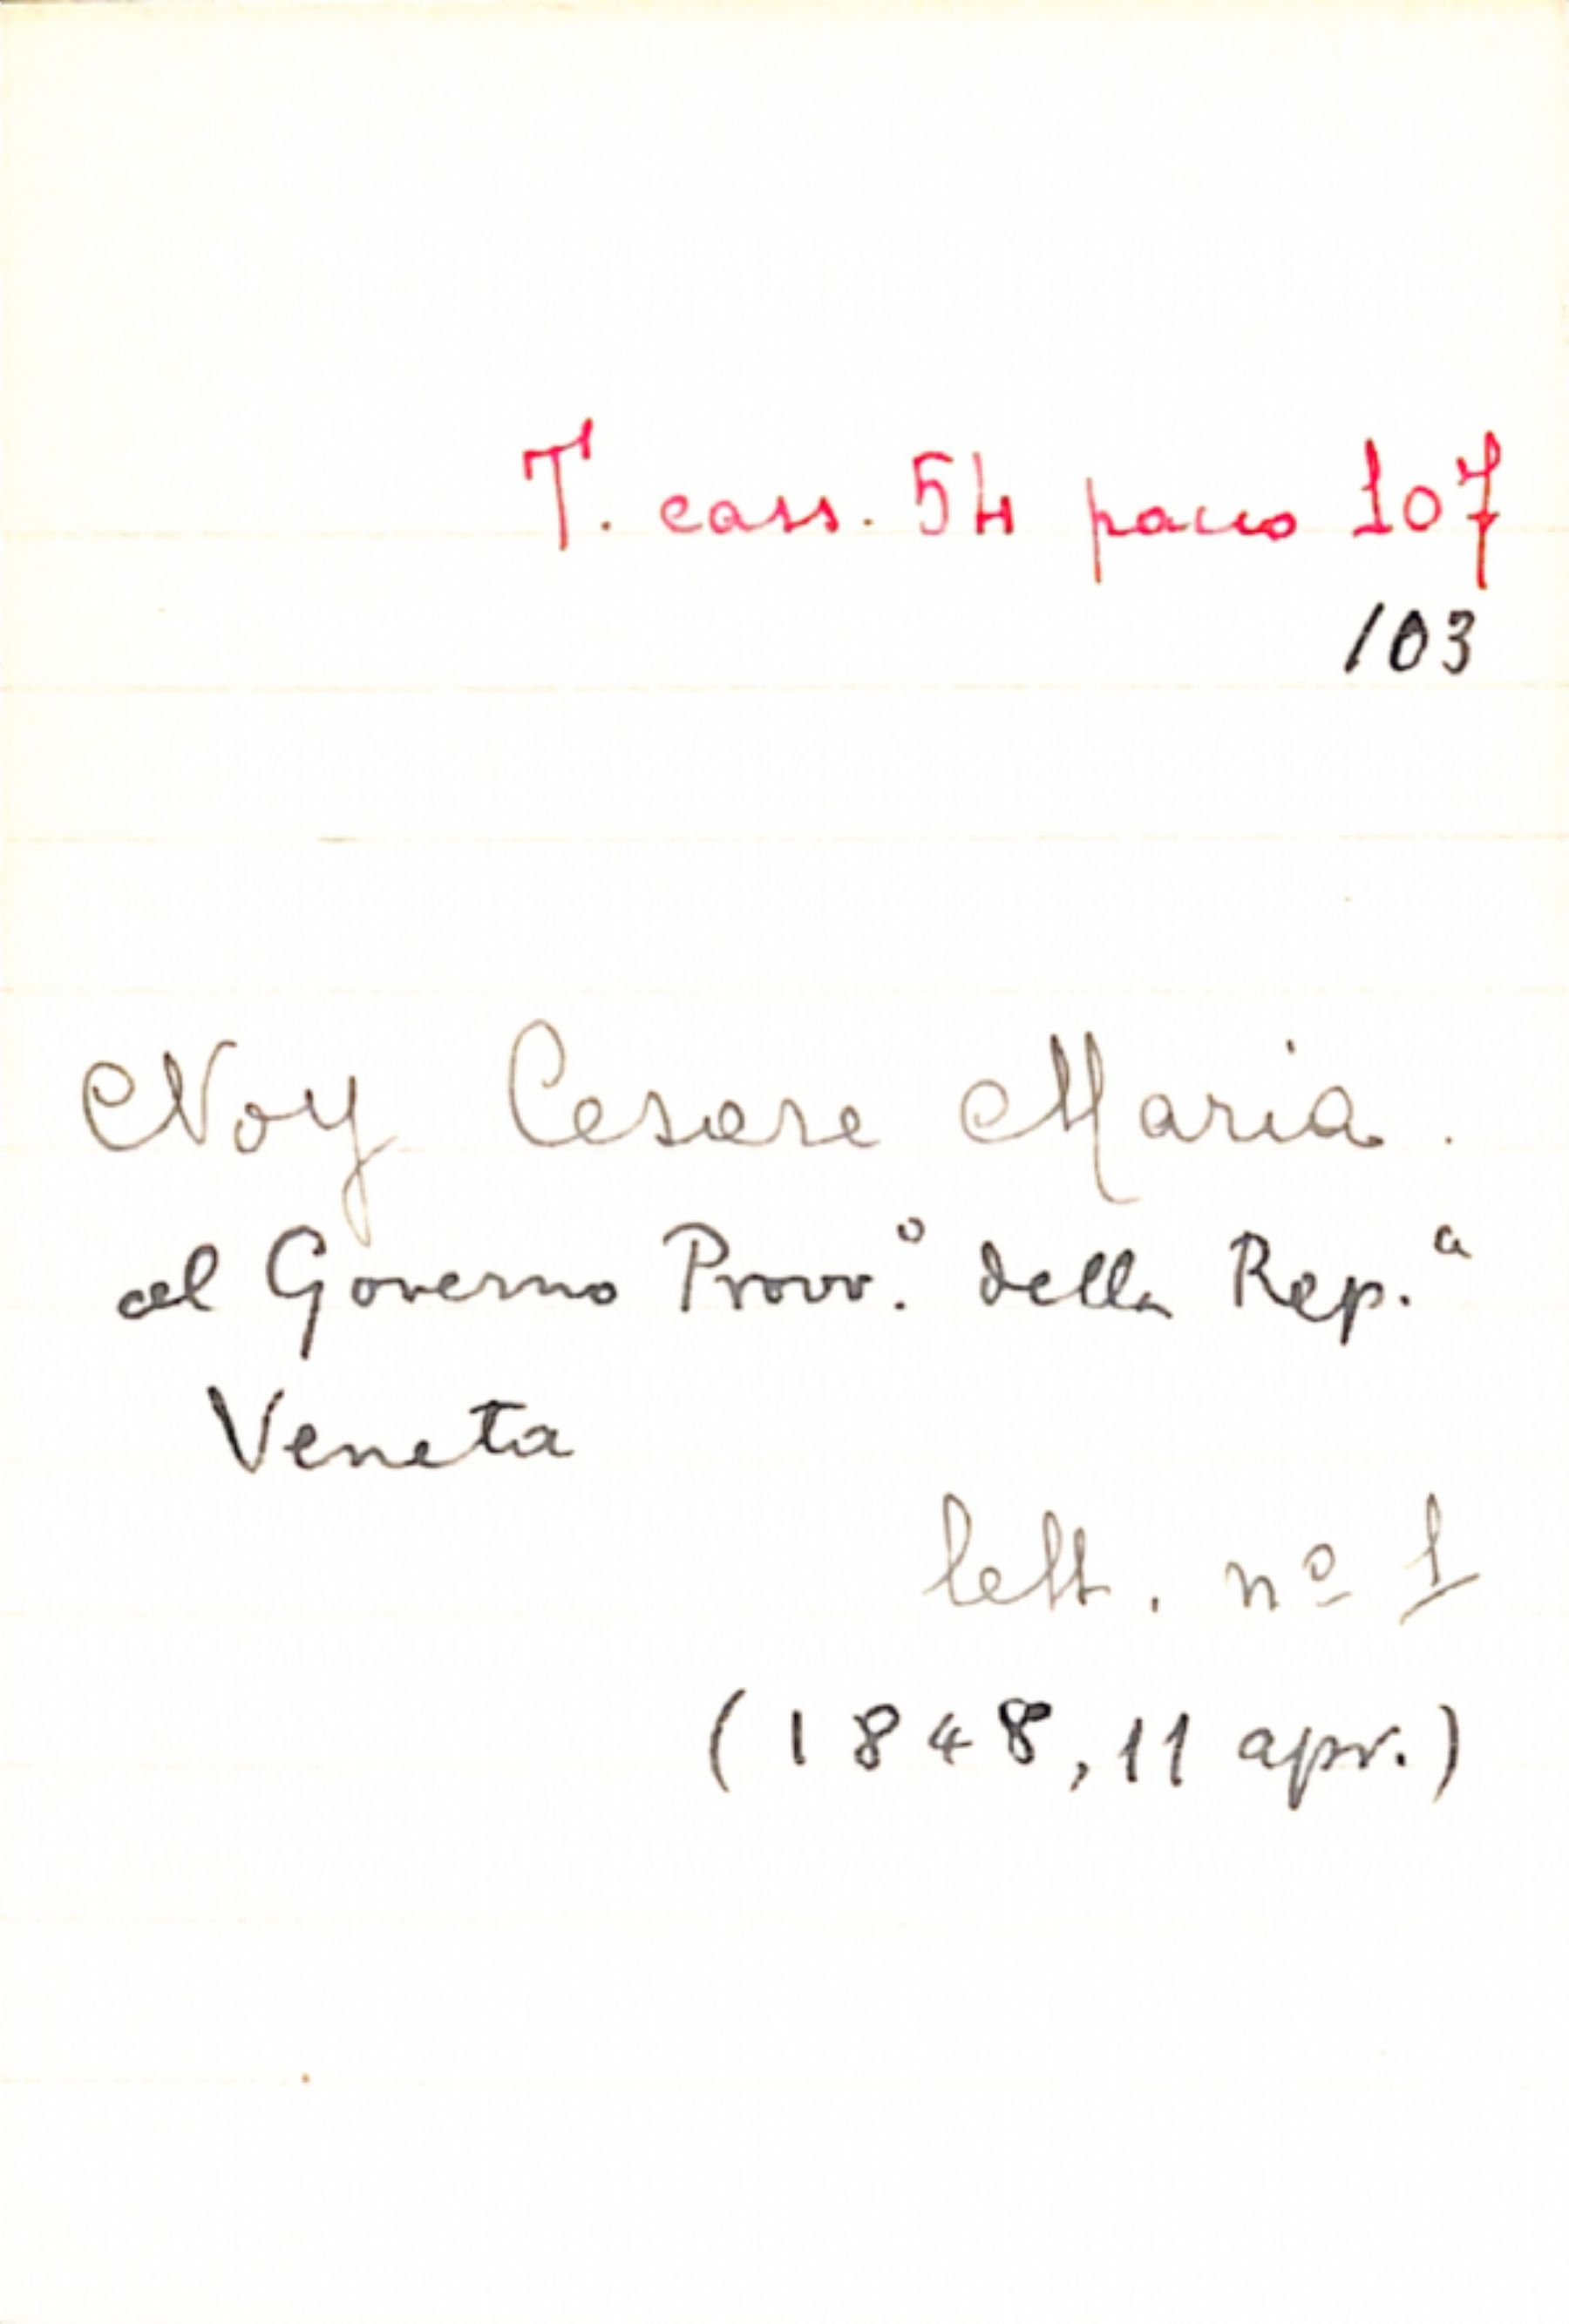 T. cass. 54 pacco 107
103
Noy Cesare Maria.
al Governo Provv.º della Rep.ª
Veneta
lett. nº 1
(1848, 11 apr.)